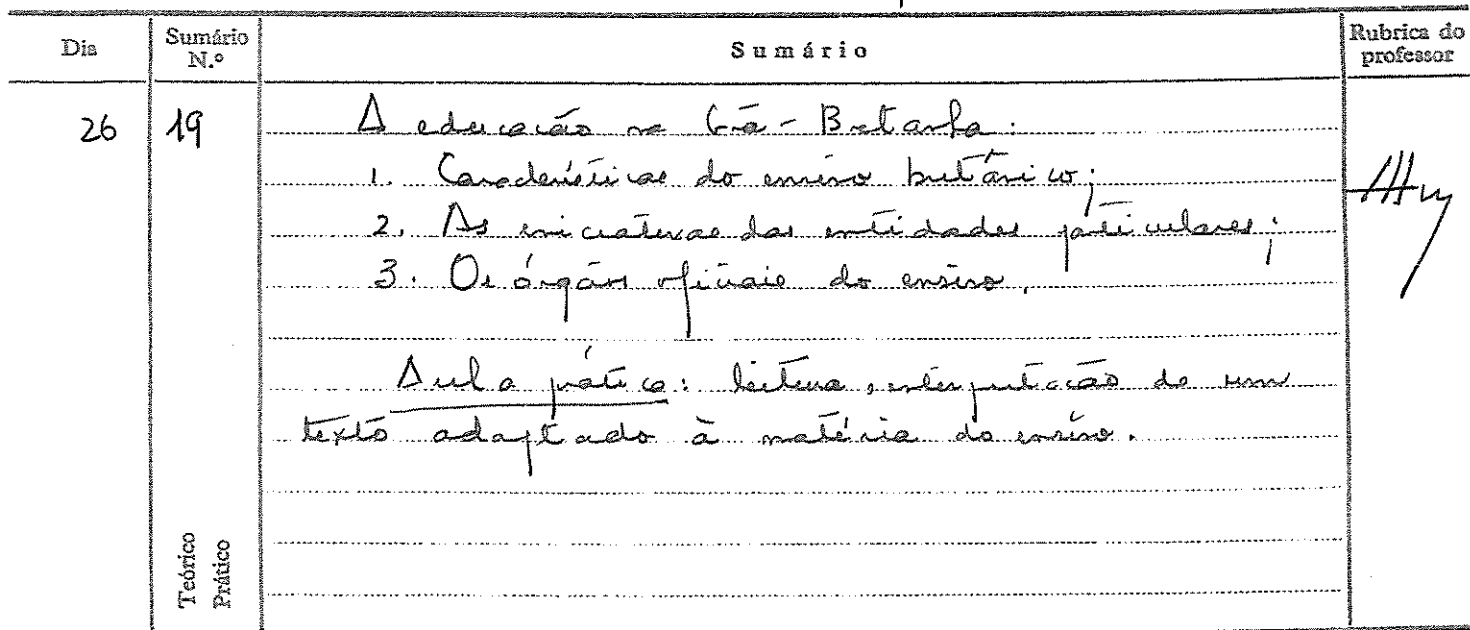 Dia
Sumário N.º
Sumário
Rubrica do professor
26
19
A educação na Grã-Bretanha:
1. Características do ensino britânico;
2. As iniciativas das entidades particulares;
3. Os órgãos oficiais do ensino.
Aula prática: leitura, interpretação de um
texto adaptado à matéria do ensino.
Teórico
Prático